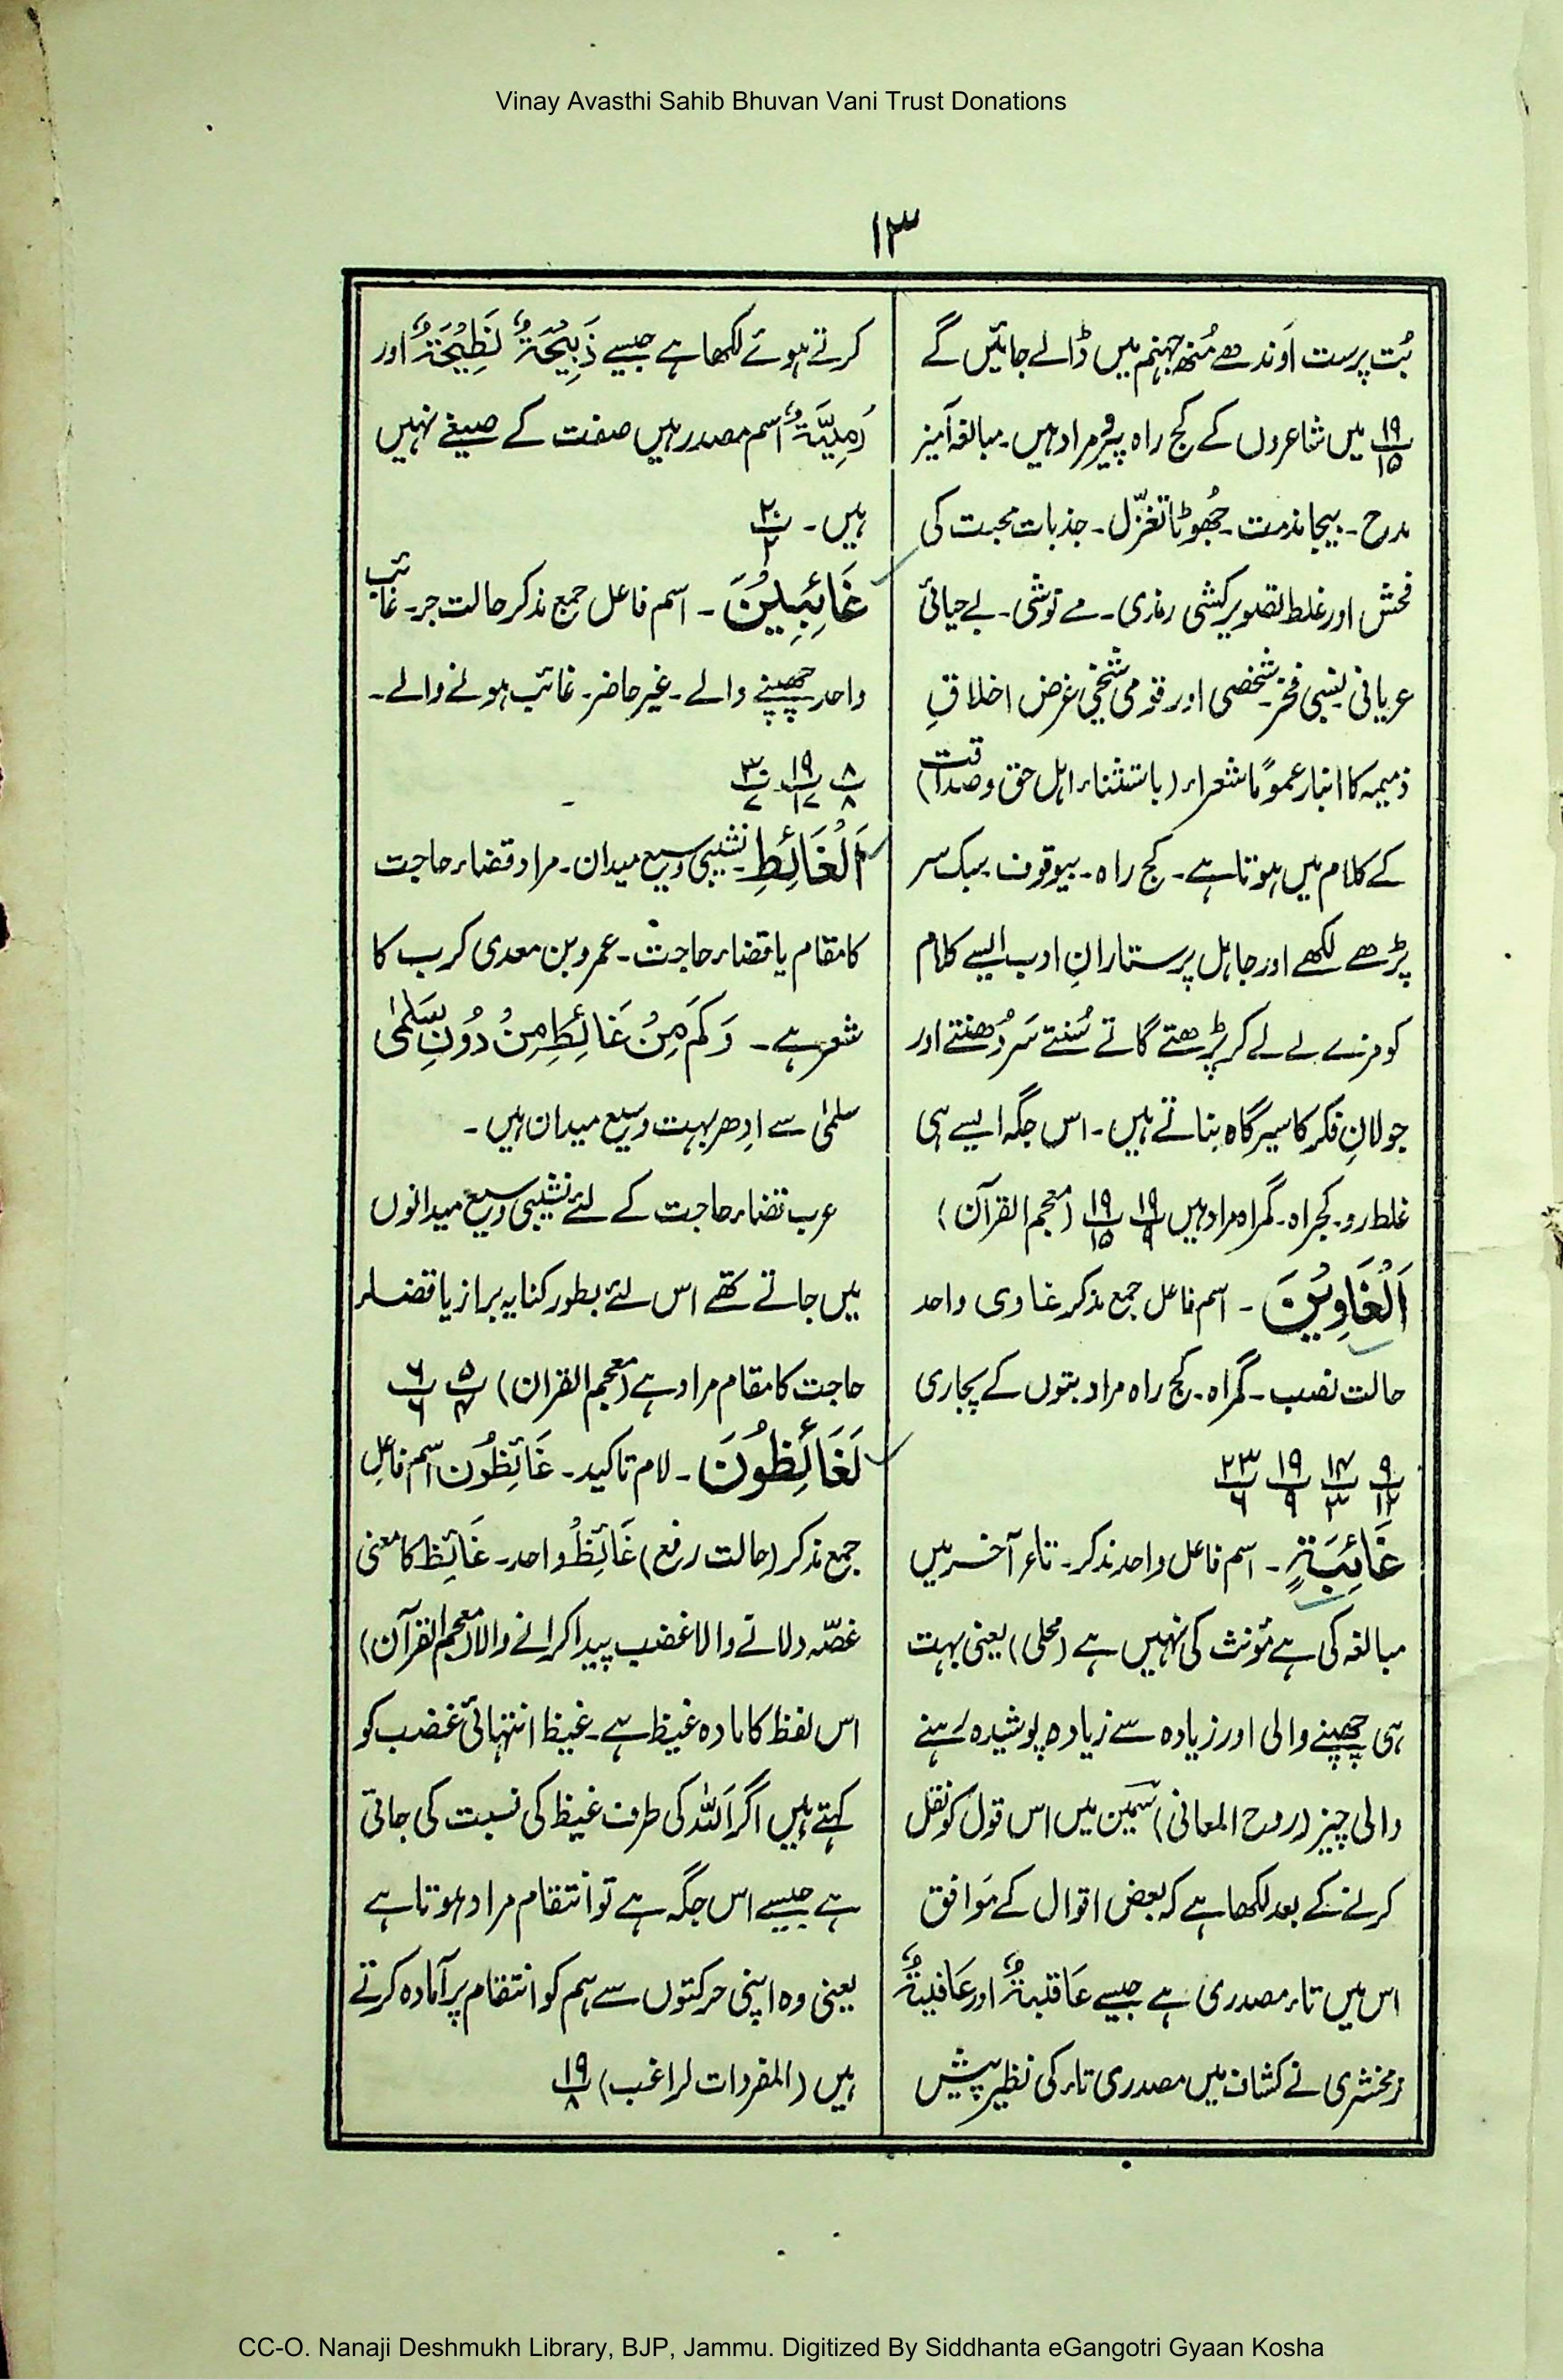 Vinay Avasthi Sahib Bhuvan Vani Trust Donations
۱۳
بُت پرست اَوندھے مُنھ جہنم میں ڈالے جائیں گے
۱۹/۱۵ میں شاعروں کے کج راہ پیرو مراد ہیں۔ مبالغہ آمیز
مدح۔ بیجا مذمت۔ جُھوٹا تغزّل۔ جذبات محبت کی
فحش اور غلط تصویر کشی رندی۔ مے نوشی۔ بے حیائی
عریانی نسبی فخر۔ شخصی اور قومی شیخی غرض اخلاقِ
ذمیمہ کا انبار عموماً شعراء (باستثناء اہل حق و صداقت)
کے کلام میں ہوتا ہے۔ کج راہ۔ بیوقوف۔ سبک سر
پڑھے لکھے اور جاہل پرستارانِ ادب ایسے کلام
کو مزے لے لے کر پڑھتے گاتے سُنتے سَر دُھنتے اور
جولانِ فکر کا سیرگاہ بناتے ہیں۔ اس جگہ ایسے ہی
غلط رو۔ کجراہ۔ گمراہ مراد ہیں ۱۹/۹ ۱۹/۱۵ (معجم القرآن)
اَلْغَاوِيْنَ۔ اسم فاعل جمع مذکر غاوی واحد
حالت نصب۔ گمراہ۔ کج راہ مراد بتوں کے پجاری
۹/۱۲ ۱۴/۳ ۱۹/۹ ۲۳/۶
غَائِبَۃٍ۔ اسم فاعل واحد مذکر۔ تاء آخر میں
مبالغہ کی ہے مؤنث کی نہیں ہے (محلی) یعنی بہت
ہی چھپنے والی اور زیادہ سے زیادہ پوشیدہ رہنے
والی چیز (روح المعانی) سمین میں اس قول کو نقل
کرنے کے بعد لکھا ہے کہ بعض اقوال کے مَوافق
اس میں تاء مصدری ہے جیسے عَاقبۃٌ اور عَافیۃٌ
زمخشری نے کشاف میں مصدری تاء کی نظیر پیش
کرتے ہوئے لکھا ہے جیسے ذَبِيْحَۃٌ نَطِيْحَۃٌ اور
رَمِيَّۃٌ اسم مصدر ہیں صفت کے صیغے نہیں
ہیں۔ ۲۰/۲
غَائِبِيْنَ۔ اسم فاعل جمع مذکر حالت جر۔ غائب
واحد چھپنے والے۔ غیر حاضر۔ غائب ہونے والے۔
۸/۸ ۱۹/۱۷ ۳۰/۷
اَلْغَائِطِ۔ نشیبی وسیع میدان۔ مراد قضاء حاجت
کا مقام یا قضاء حاجت۔ عمرو بن معدی کرب کا
شعر ہے۔ وَكَمْ مِنْ غَائِطٍ مِنْ دُونِ سَلْمٰی
سلمٰی سے ادھر بہت وسیع میدان ہیں۔
عرب قضاء حاجت کے لئے نشیبی وسیع میدانوں
میں جاتے تھے اس لئے بطور کنایہ براز یا قضاء
حاجت کا مقام مراد ہے (معجم القرآن) ۵/۴ ۶/۶
لَغَائِظُوْنَ۔ لام تاکید۔ غَائِظُوْن اسم فاعل
جمع مذکر (حالت رفع) غَائِظٌ واحد۔ غَائِظ کا معنی
غصّہ دلانے والا غضب پیدا کرانے والا (معجم القرآن)
اس لفظ کا مادہ غیظ ہے۔ غیظ انتہائی غضب کو
کہتے ہیں اگر اَللہ کی طرف غیظ کی نسبت کی جاتی
ہے جیسے اس جگہ ہے تو انتقام مراد ہوتا ہے
یعنی وہ اپنی حرکتوں سے ہم کو انتقام پر آمادہ کرتے
ہیں (المفردات لراغب) ۱۹/۸
CC-O. Nanaji Deshmukh Library, BJP, Jammu. Digitized By Siddhanta eGangotri Gyaan Kosha